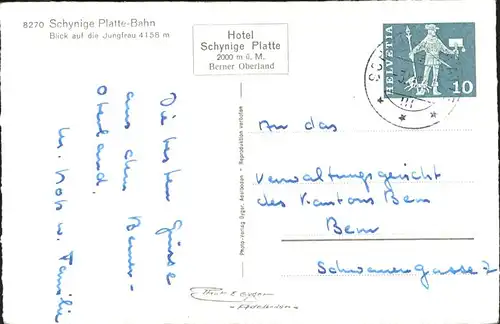 8270 Schynige Platte-Bahn
Blick auf die Jungfrau 4158 m
Hotel
Schynige Platte
2000 m ü. M.
Berner Oberland
HELVETIA
10
Die besten Grüsse
aus dem Berner-
Oberland.
u. Familie
Photo-Verlag Gyger, Adelboden - Reproduktion verboten
An das
Verwaltungsgericht
des Kantons Bern
Bern
Adelboden